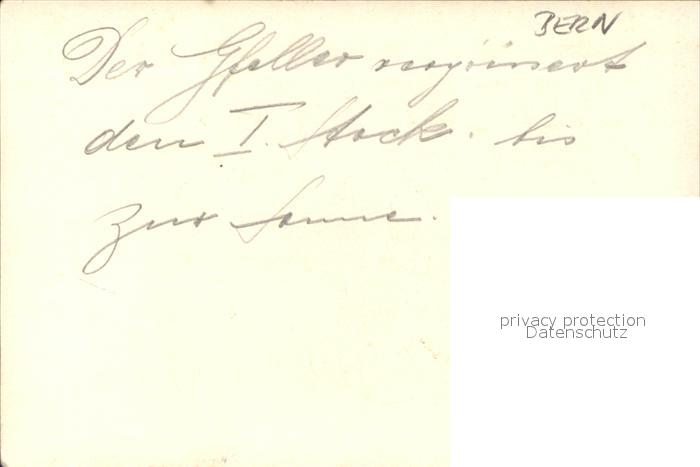 BERN
Der Gfeller
den I. Stock. bis
zur Sonne.
privacy protection
Datenschutz